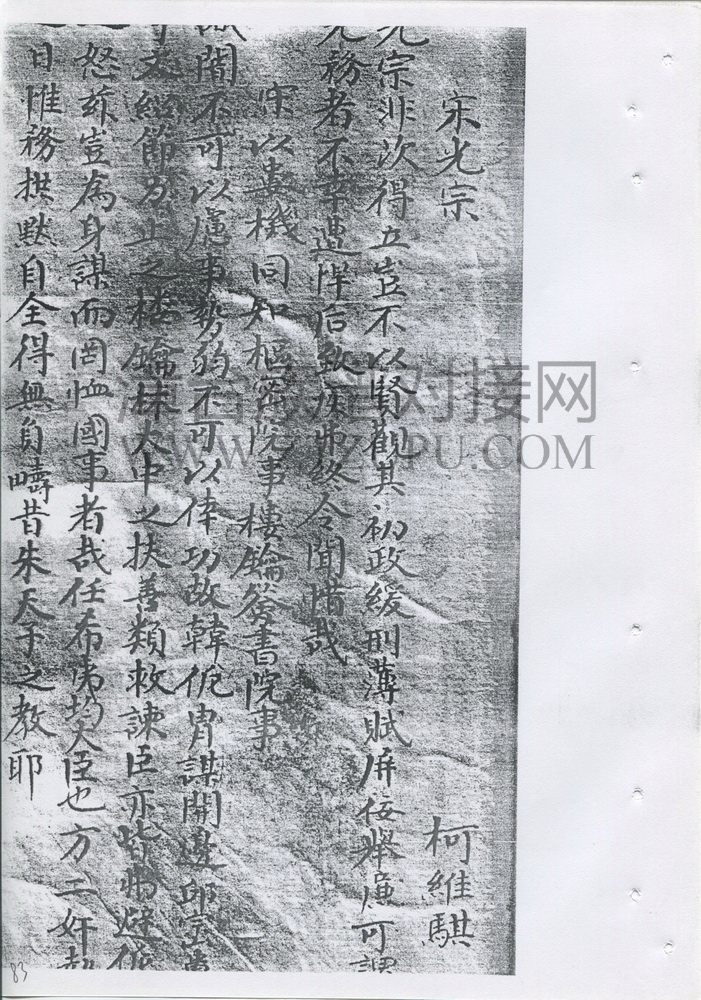 宋光宗
柯維騏
光宗非次得立豈不以賢觀其初政緩刑薄賦屏佞舉廉可謂
先務者不幸遭悍后致疾弗終令聞惜哉
宋以婁機同知樞密院事樓鑰簽書院事
闇不可以慮事勢弱不可以倖功故韓侂冑謀開邊邱宗
文紹節力止之樓鑰林大中之扶善類救諫臣亦皆弗避侂
怒茲豈為身謀而罔恤國事者哉任希夷均大臣也方二奸
日惟務拱默自全得無負疇昔朱夫子之教耶
WWW.JZJPU.COM
83